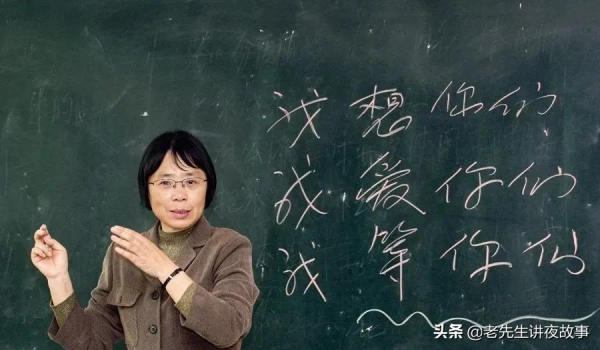 我想你们
我爱你们
我等你们
头条 @老先生讲夜故事